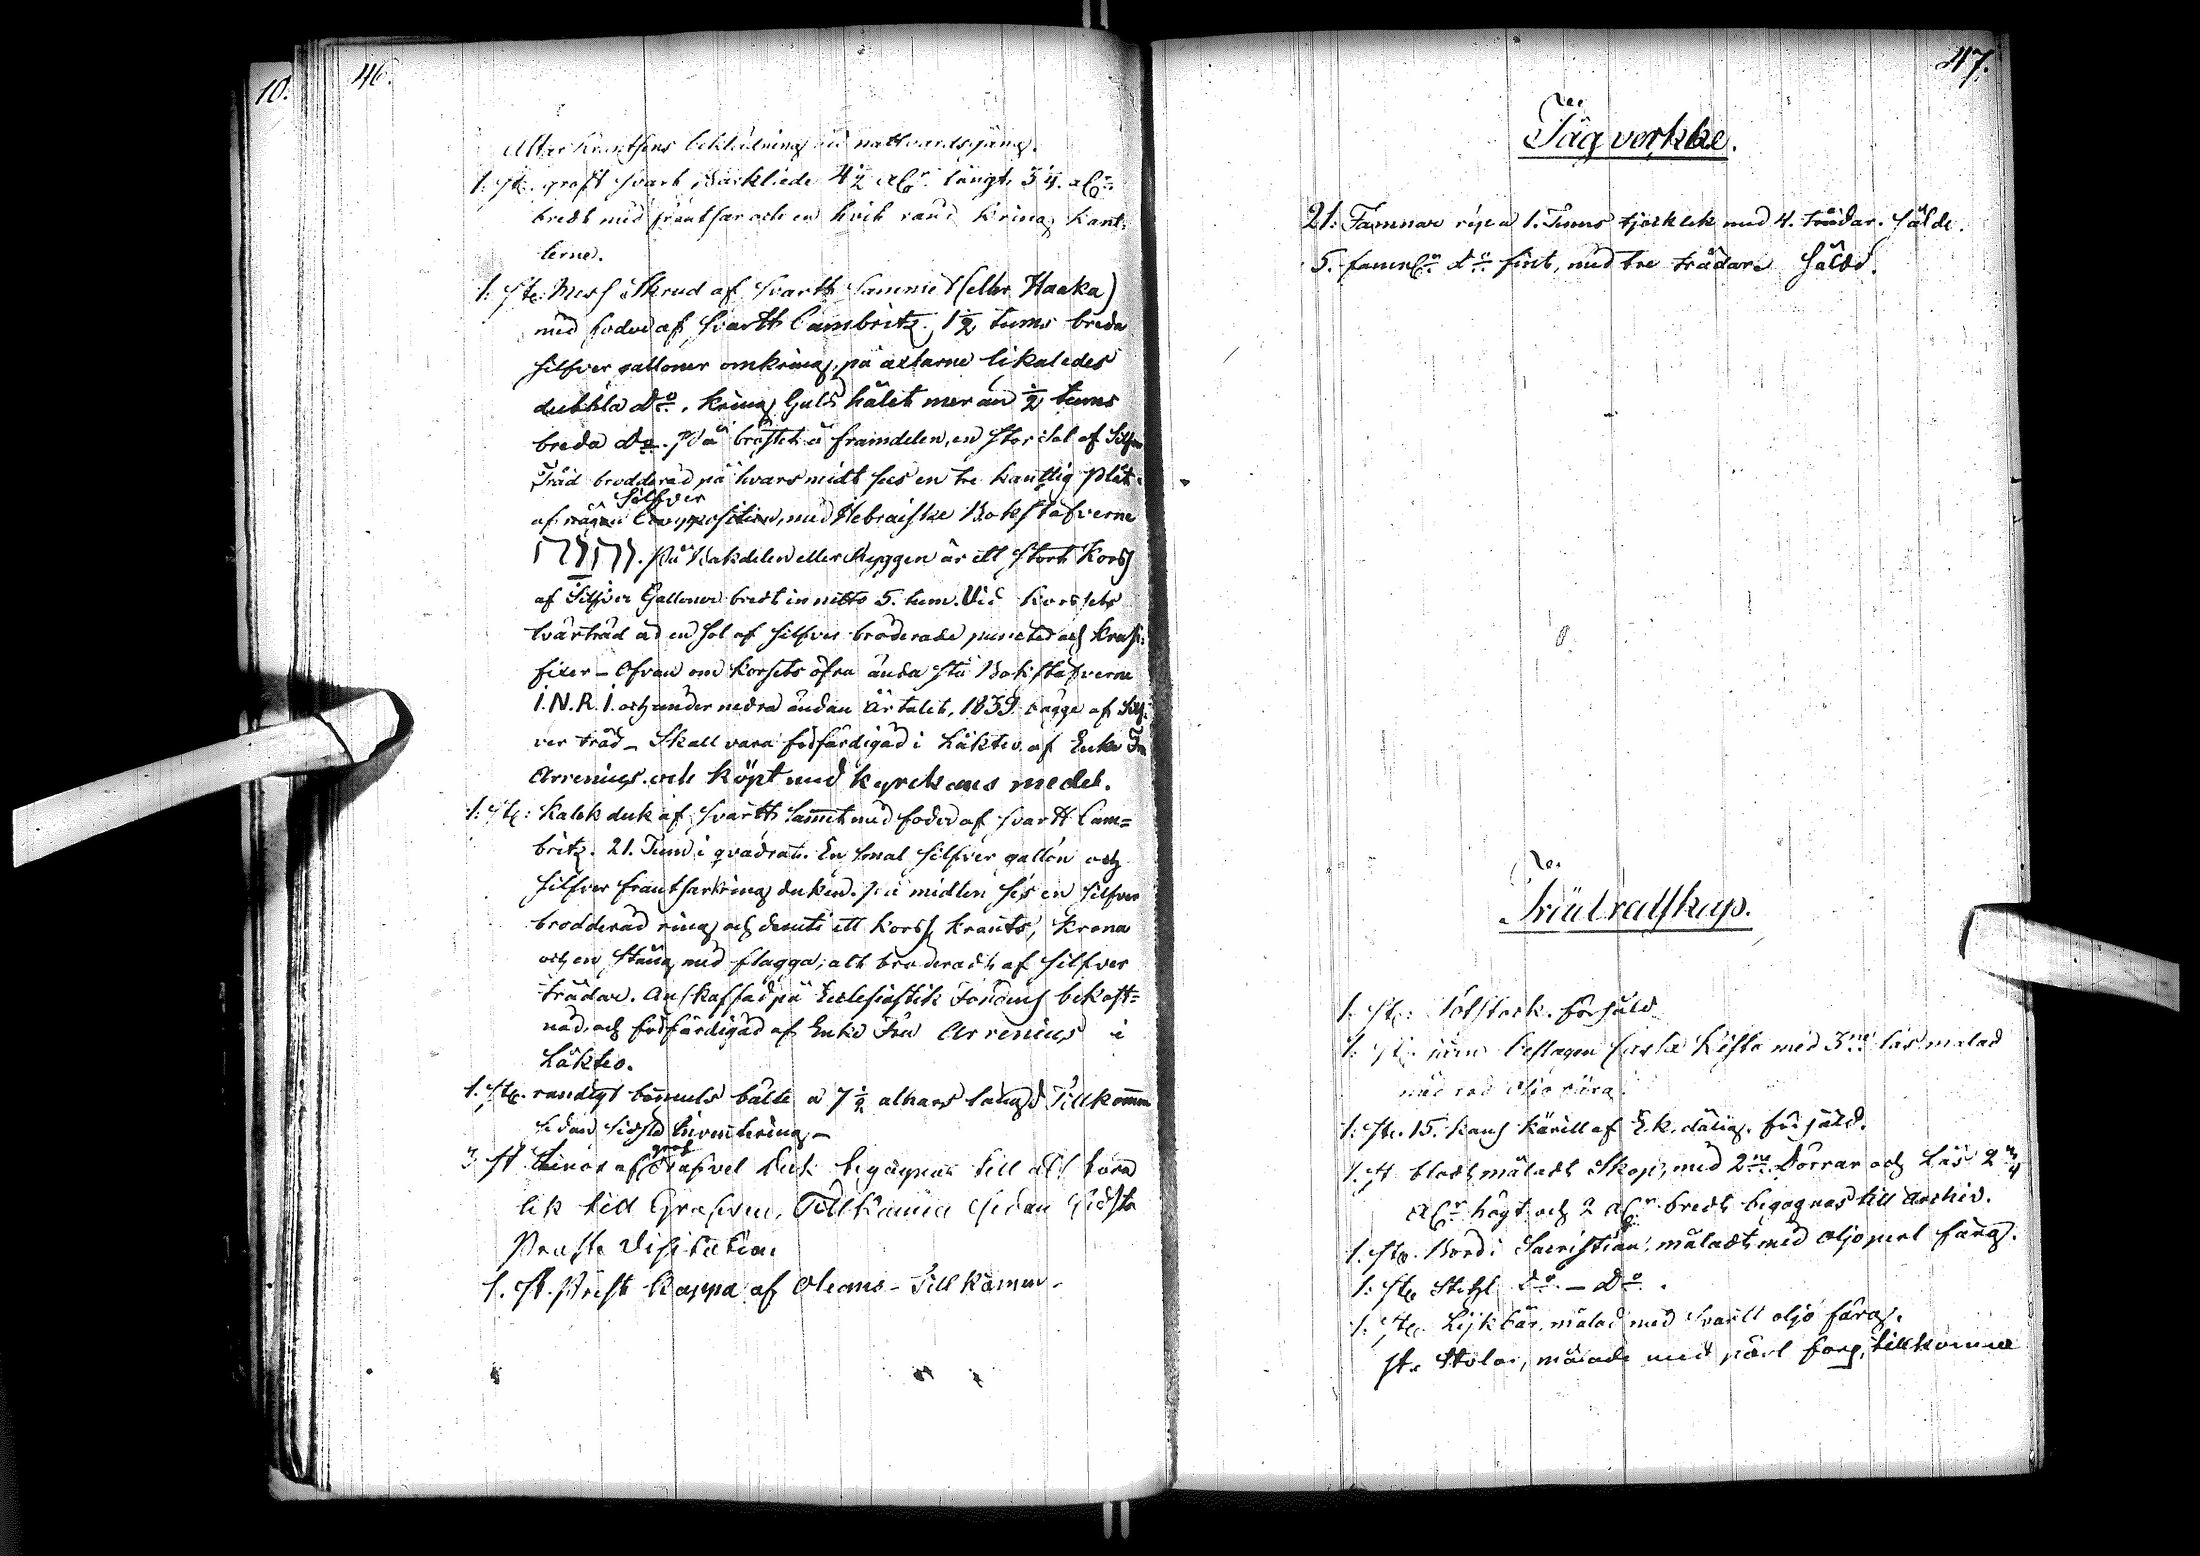 10.
46.
Altar krantsens beklädning vid nattvardsgång.
1. st. groft svart Bårkläde 4 1/2 aln:r långt, 3 1/4 aln:r
bredt med frantsar och en hvit rand kring kant-
terne.
1: st: Mess Skrud af svartt Sammet (eller Haaka)
med foder af svartt Cambritz. 1 1/2 tums breda
silfver galloner omkring, på axlarne likaledes
dubbla D:o. kring hals hålet mer än 1/2 tums
breda D:o. På bröstet å framdelen, en stor Sol af Silfver
Tråd brodderad på hvars midt ses en tre kanttig Plåt
af någon Silfver Composition, med Hebraiske Bokstäfverne
יהוה. På Bakdelen eller Ryggen är ett stort Korss
af Silfver Galloner bredt in nitto 5. tum. Vid Korssets
tvärträd äd en sol af silfver broderade puncter och krusi-
fixer – Ofvan om korsets öfra ända stå Bokstäfverne
I.N.R.I. och under nedra ändan Årtalet, 1839. bägge af Silf-
ver tråd – Skall vara förfärdigad i Häktet af Enke Fru
Arrenius. och köpt med kyrckans medel.
1: st: Kalk duk af svartt Sammet med foder af svartt Cam=
britz. 21. Tum i qvadrat. En smal silfver gallon och
silfver frantsar kring duken. på midten ses en silfver
brodderad ring och deruti ett korss, krants, krona
och en stång med flagga; alt broderadt af silfver
trådar. Anskaffad på Ecclesiastik Fondens bekost=
nad, och förfärdigad af Enke Fru Arrenius i
Häktet.
1. st. randigt bomuls bälte a 7 1/2 alnars längd Tillkommen
sedan sidsta Inventering –
3. st Linor af grof Segel Duk begagnas till att bära
lik till Grafven. Tillkomna sedan sidsta
Prosts Visitation
1. st. Prest Kappa af Oleans – Tillkommen –
47.
Tåg verkke.
21: Famnar rep a 1. Tums tjocklek med 4. trådar. sålde.
5. famn:r D:o fint, med tre trådar Såldt.
Träredskap.
1. st: Fotstock. försåld
1: st. järn beslagen Cassa Kista med 3:ne lås målad
med röd oljo färg.
1: st. 15. kans kärill af Ek. dålig. försåld.
1. st blott måladt Skåp, med 2:ne Dörrar och Lås 2 3/4
aln:r högt och 2 aln:r bredt begagnas till Archiv.
1. st. Bord i Sacristian, måladt med oljo perl färg.
1: st Stohl D:o – D:o.
1. st. Likbår, målad med svartt oljo färg.
st. Stolar, målade med pärl färg, tillkomne